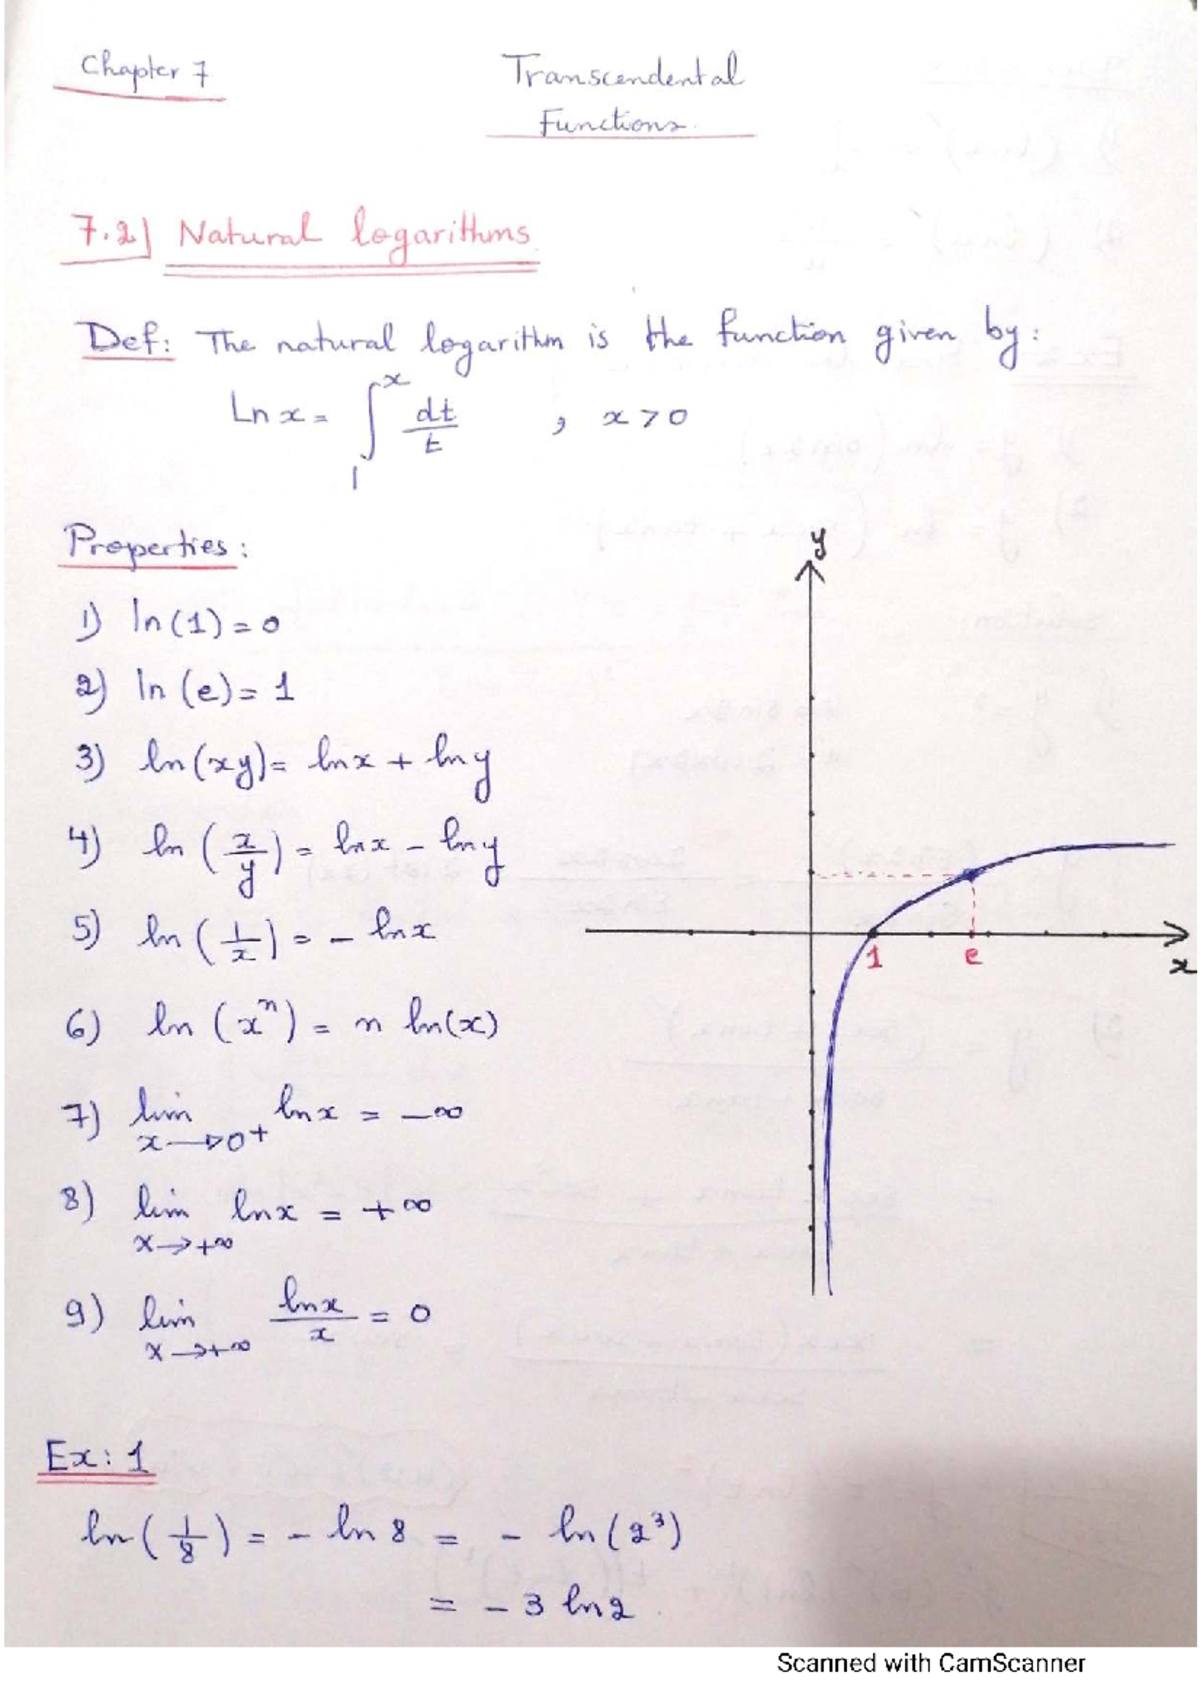 Chapter 7
Transcendental
Functions.
7.2) Natural logarithms
Def: The natural logarithm is the function given by:
Ln x = ∫₁ˣ dt/t , x > 0
Properties:
1) ln(1) = 0
2) ln(e) = 1
3) ln(xy) = lnx + lny
4) ln(x/y) = lnx - lny
5) ln(1/x) = - lnx
6) ln(xⁿ) = n ln(x)
7) lim x→0+ lnx = -∞
8) lim x→+∞ lnx = +∞
9) lim x→+∞ lnx/x = 0
y
1 e
x
Ex: 1
ln(1/8) = - ln 8 = - ln(2³)
= - 3 ln2
Scanned with CamScanner